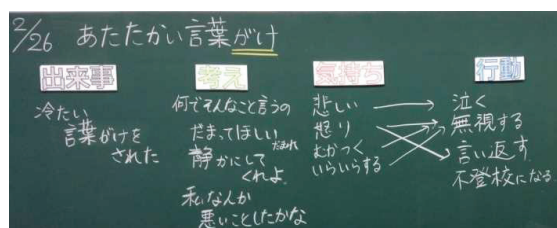 2/26 あたたかい言葉がけ
出来事
冷たい
言葉がけを
された
考え
何でそんなこと言うの
だまってほしい
だまれ
静かにして
くれよ
私なんか
悪いことしたかな
気持ち
悲しい
怒り
むかつく
いらいらする
行動
泣く
無視する
言い返す
不登校になる